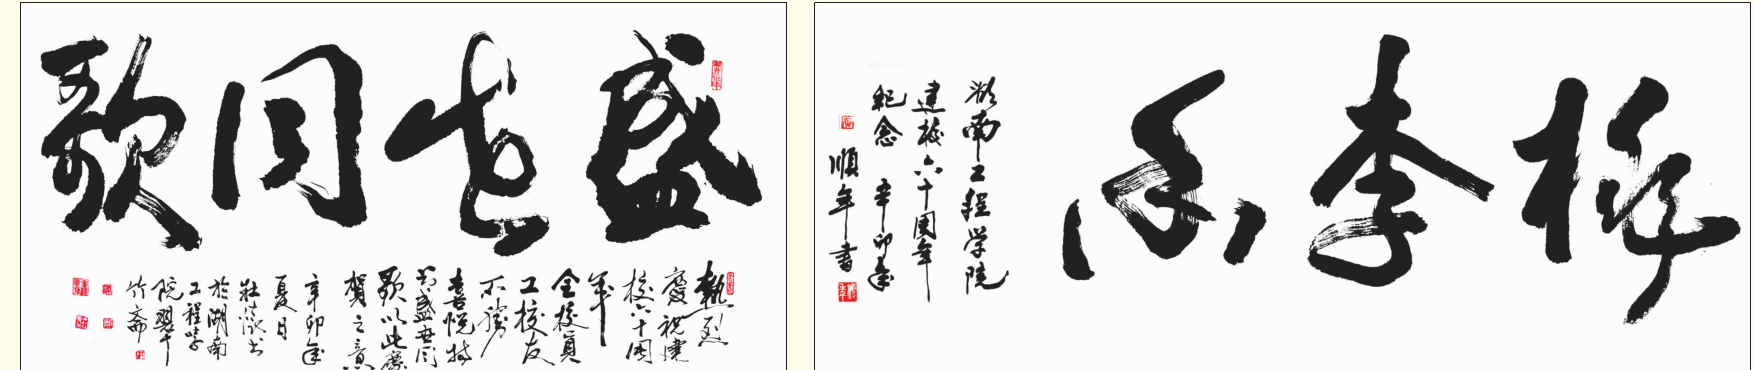 盛世同歌
熱烈
慶祝建
校六十周
年
全校員
工校友
不勝
喜悦特
书盛世同
歌以此慶
賀之意
辛卯年
夏日
壯懷书
於湖南
工程学
院翠
竹斋
桃李香
湖南工程学院
建校六十周年
紀念 辛卯年
順年書